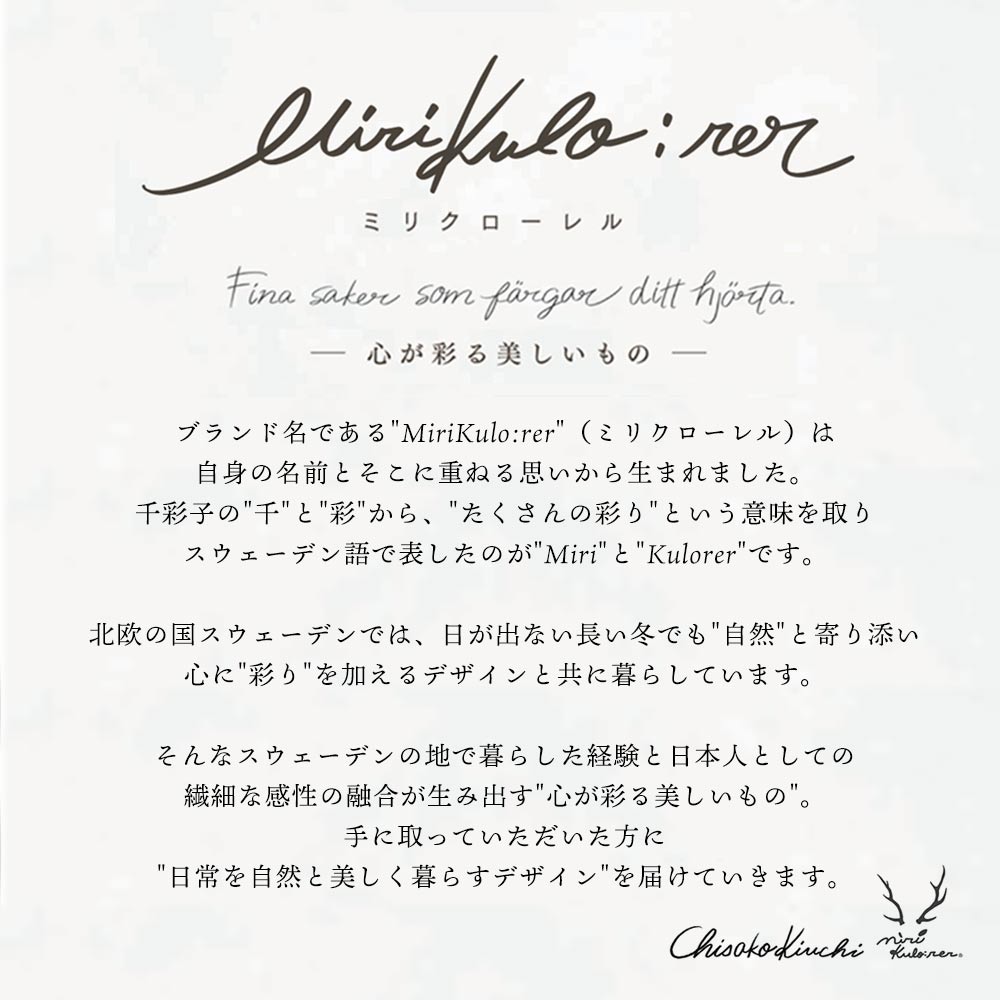 MiriKulo:rer
ミリクローレル
Fina saker som färgar ditt hjörta.
― 心が彩る美しいもの ―
ブランド名である"MiriKulo:rer"（ミリクローレル）は
自身の名前とそこに重ねる思いから生まれました。
千彩子の"千"と"彩"から、"たくさんの彩り"という意味を取り
スウェーデン語で表したのが"Miri"と"Kulorer"です。
北欧の国スウェーデンでは、日が出ない長い冬でも"自然"と寄り添い
心に"彩り"を加えるデザインと共に暮らしています。
そんなスウェーデンの地で暮らした経験と日本人としての
繊細な感性の融合が生み出す"心が彩る美しいもの"。
手に取っていただいた方に
"日常を自然と美しく暮らすデザイン"を届けていきます。
Chisako Kiuchi
miri
Kulo:rer®